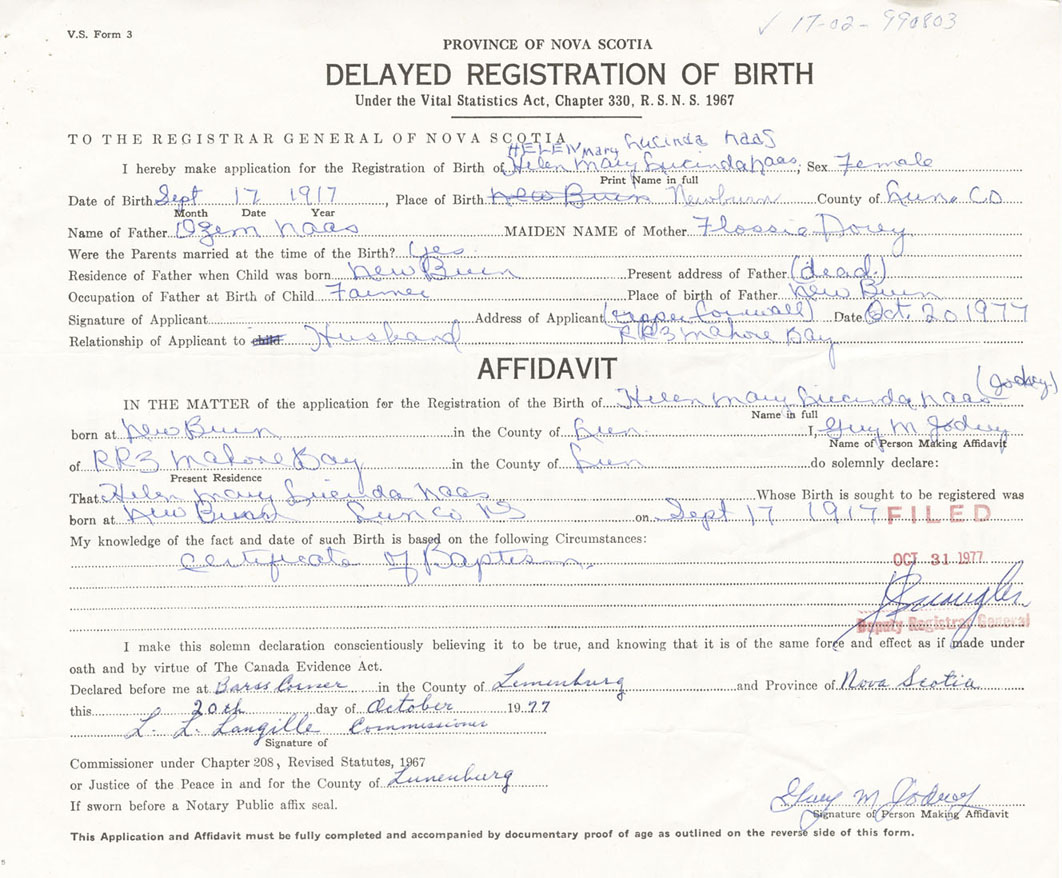 ✓ 17-02-990803
V.S. Form 3
PROVINCE OF NOVA SCOTIA
DELAYED REGISTRATION OF BIRTH
Under the Vital Statistics Act, Chapter 330, R.S.N.S. 1967
TO THE REGISTRAR GENERAL OF NOVA SCOTIA
HELEN Mary Lucinda Naas
I hereby make application for the Registration of Birth of Helen Mary Lucinda Naas, Sex Female
Print Name in full
Date of Birth Sept 17 1917, Place of Birth New Burn Newburn County of Lun. CO
Month Date Year
Name of Father Ozem Naas MAIDEN NAME of Mother Flossie Dorey
Were the Parents married at the time of the Birth? Yes
Residence of Father when Child was born New Burn Present address of Father (dead.)
Occupation of Father at Birth of Child Farmer Place of birth of Father New Burn
Signature of Applicant Address of Applicant (upper Cornwall) Date Oct. 20 1977
Relationship of Applicant to child Husband RR3 Mahone Bay
AFFIDAVIT
IN THE MATTER of the application for the Registration of the Birth of Helen Mary Lucinda Naas (Jodrey.)
Name in full
born at New Burn in the County of Lun. I, Guy M Jodrey
Name of Person Making Affidavit
of RR3 Mahone Bay in the County of Lun do solemnly declare:
Present Residence
That Helen Mary Lucinda Naas Whose Birth is sought to be registered was
born at New Burn Lun Co NS on Sept 17 1917 FILED
My knowledge of the fact and date of such Birth is based on the following Circumstances:
Certificate of Baptism.
OCT 31 1977
Deputy Registrar General
I make this solemn declaration conscientiously believing it to be true, and knowing that it is of the same force and effect as if made under
oath and by virtue of The Canada Evidence Act.
Declared before me at Barss Corner in the County of Lunenburg and Province of Nova Scotia
this 20th day of October 1977
L. L. Langille Commissioner
Signature of
Commissioner under Chapter 208, Revised Statutes, 1967
or Justice of the Peace in and for the County of Lunenburg
If sworn before a Notary Public affix seal.
Guy M Jodrey
Signature of Person Making Affidavit
This Application and Affidavit must be fully completed and accompanied by documentary proof of age as outlined on the reverse side of this form.